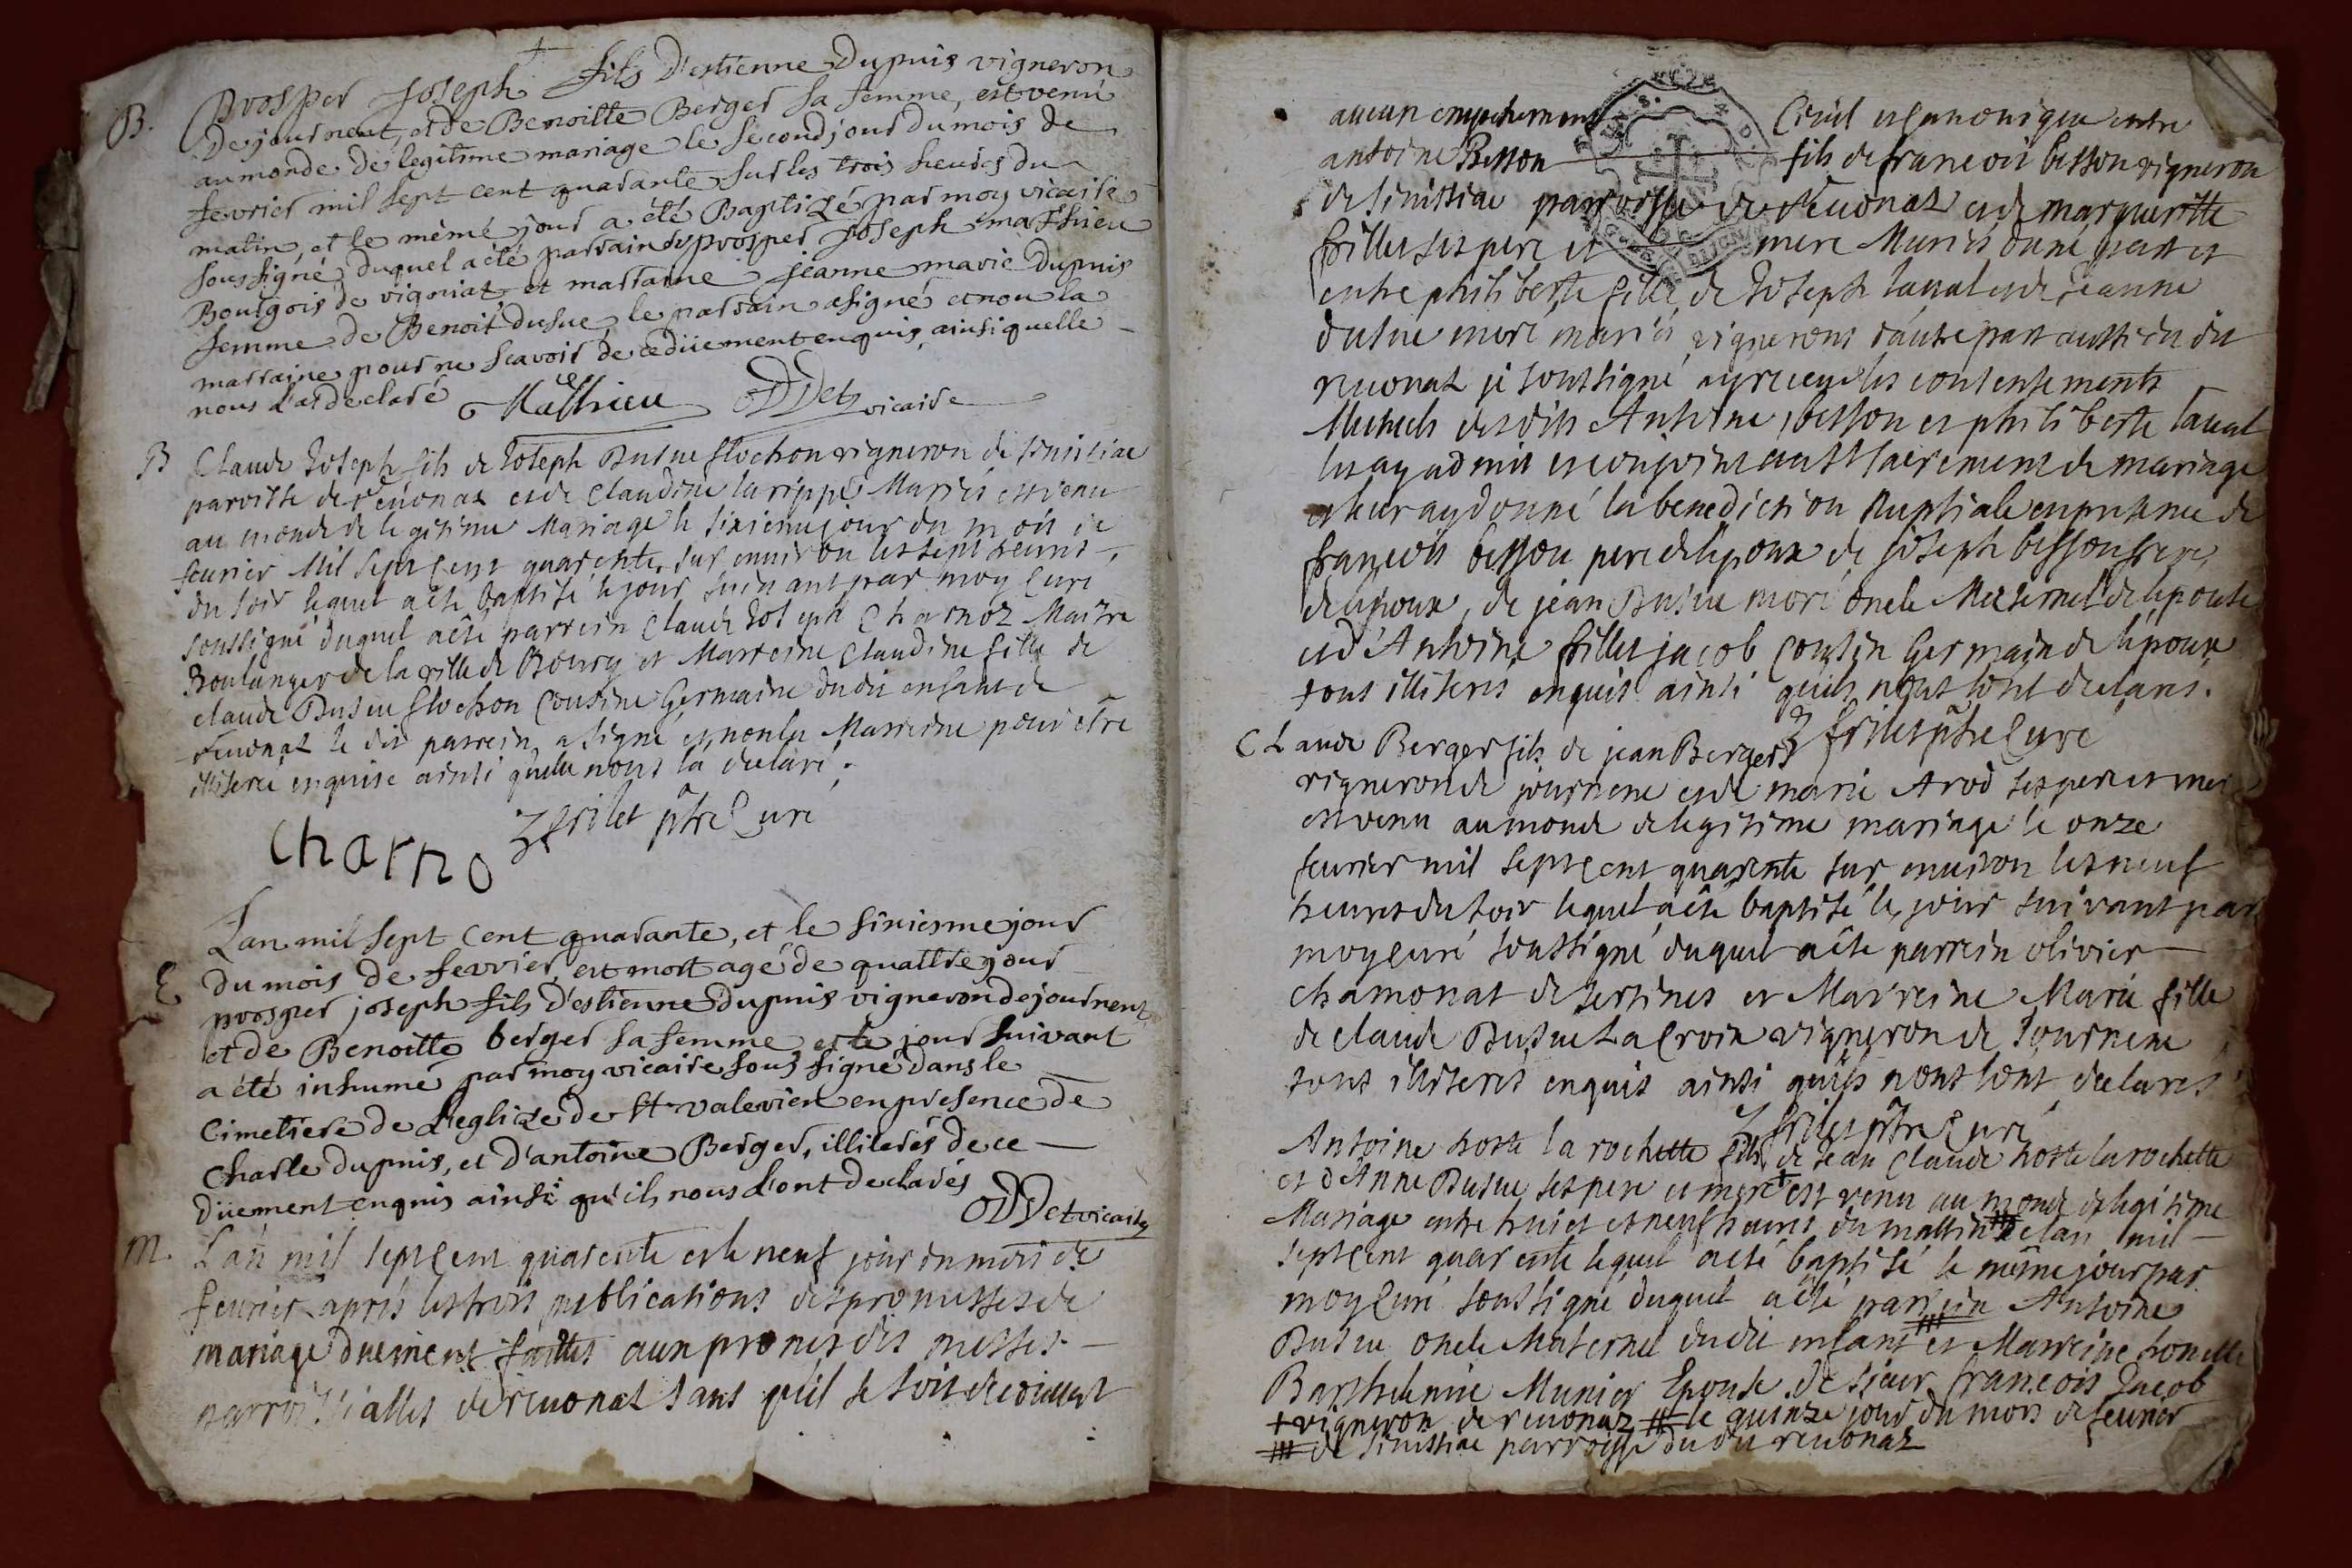 B. Prosper Joseph fils D'estienne Dupuis vigneron
De journent, et de Benoitte Berger sa femme, est venu
au monde de legitime mariage le second jour du mois de
fevrier mil sept cent quarante sur les trois heures du
matin, et le même jour a été Baptizé par moy vicaire
soussigné duquel a été parrain sr prosper Joseph mathieu
Bourgois de vigniat et marraine jeanne marie Dupuis
femme de Benoit dusue, le parrain a signé et non la
marraine pour ne scavoir de ce düement enquis, ainsi quelle
nous l'at declaré
Mathieu vicaire
B Claude Joseph fils de Joseph Dusue flochon vigneron de sinissiac
parroisse de revonas et de Claudine larippe Mariés est venu
au monde de legitime Mariage le sixieme jour du mois de
feurier Mil sept cent quarente, sur enuiron les sept heures
du soir lequel a été baptisé le jour suiuant par moy Curé
soussigné duquel a été parrein Claude Joseph Charnoz Maitre
Boulanger de la ville de Bourg et Marreine Claudine fille de
claude Dusue flochon Cousine Germaine du dit enfant de
reuonaz le dit parrein a signé et non la Marreine pour être
illiteree enquise ainsi quelle nous la declaré.
frilet ptre Curé
Charno
E Lan mil sept cent quarante, et le sixiesme jour
du mois de fevrier, est mort agé de quattre jour
prosper joseph fils d'estienne dupuis vigneron de journent
et de Benoitte berger sa femme et le jour suivant
a été inhumé par moy vicaire sous signé dans le
Cimetiere de L'eglize de st valerien en présence de
Charle dupuis, et d'antoine Berger, illiterés de ce
düement enquis ainsi qu'ils nous l'ont declarés
vicaire
M. L'an mil sept cent quarente et le neuf jour du mois de
feurier apres les trois publications des promesses de
mariage duement faittes aux prones des messes
parroissialles de reuonat sans quil se soit decouuert
aucun empechement Ciuil et Canonique entre
antoine Besson fils de francois besson vigneron
de sinissiac parroisse de Reuonaz et de margueritte
frillet ses pere et mere Mariés dune part et
entre philiberte fille de Joseph laual et de jeanne
dusue mere mariés vignerons dautre part aussi du dit
reuonaz je soussigné ay receu les consentements
Mutuels desdits Antoine besson et philiberte laual
les ay admis et conjoins au st sacrement de mariage
et leur ay donné la benediction Nuptiale en presence de
francois besson pere de lepoux de joseph besson frere
de lepoux, de jean Dusue moré oncle Maternel de lepouse
et d'Antoine frillet jacob Cousin Germain de lépoux
tous illiteres enquis ainsi quils nous lont declarés.
frilet ptre Curé
Claude Berger fils de jean Berger
vigneron de journene et de marie Arod ses pere et mere
est venu au monde de legitime mariage le onze
feurier mil sept cent quarente sur enuiron les neuf
heures du soir lequel a été baptisé le jour suivant par
moy Curé soussigné duquel a été parrein olivier
chamonat de tertines et Marreine Marie fille
de claude Dusue La Croix vigneron de Journene
tous illiteres enquis ainsi quils nous lont declarés
frilet ptre Curé
Antoine hoste la rochette fils de jean Claude hoste la rochette
et d'Anne Dusue ses pere et mere + est venu au monde de legitime
Mariage entre huit et neuf heures du mattin # de lan mil
sept cent quarente lequel a été baptisé le même jour par
moy Curé soussigné duquel a été parrein Antoine
Dusue oncle Maternel du dit enfant et Marreine honette
Barthelemie Munier Epouse de sieur francois Jacob
+ vigneron de reuonaz # le quinze jour du mois de feurier
# de sinissiac parroisse du dit reuonaz